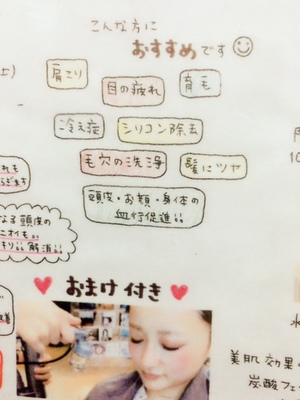 こんな方に
おすすめです
肩こり
目の疲れ
育毛
冷え症
シリコン除去
毛穴の洗浄
髪にツヤ
頭皮・お顔・身体の
血行促進!!
なる頭皮の
ニオイも
解消!!
おまけ付き
美肌効果
炭酸フェ